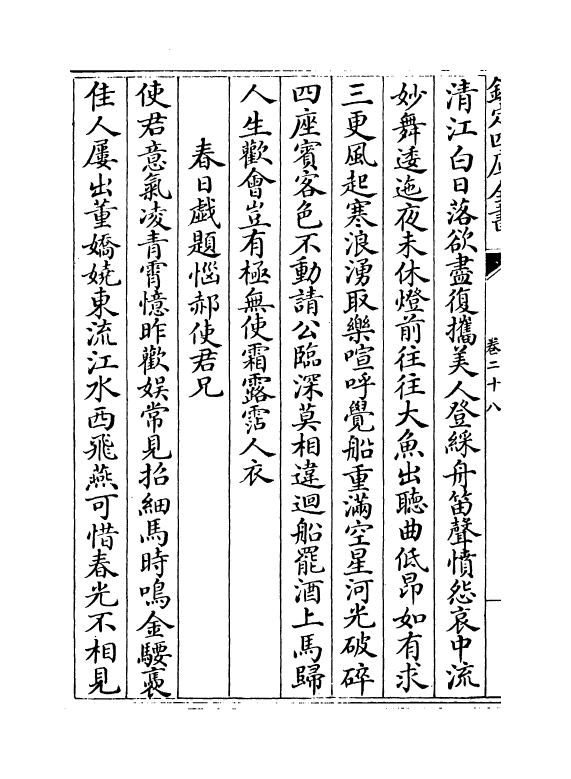 欽定四庫全書
卷二十八
清江白日落欲盡復攜美人登綵舟笛聲憤怨哀中流
妙舞逶迤夜未休燈前往往大魚出聽曲低昂如有求
三更風起寒浪湧取樂喧呼覺船重滿空星河光破碎
四座賓客色不動請公臨深莫相違迴船罷酒上馬歸
人生歡會豈有極無使霜露霑人衣
春日戲題惱郝使君兄
使君意氣凌青霄憶昨歡娱常見招細馬時鳴金騕褭
佳人屢出董嬌嬈東流江水西飛燕可惜春光不相見